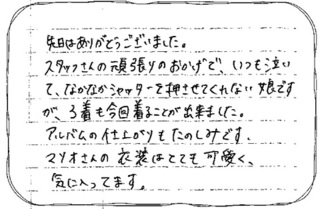 先日はありがとうございました。
スタッフさんの頑張りのおかげで、いつも泣い
て、なかなかシャッターを押させてくれない娘です
が、3着も今回着ることが出来ました。
アルバムの仕上がりもたのしみです。
マリオさんの衣装はとても可愛く、
気に入ってます。